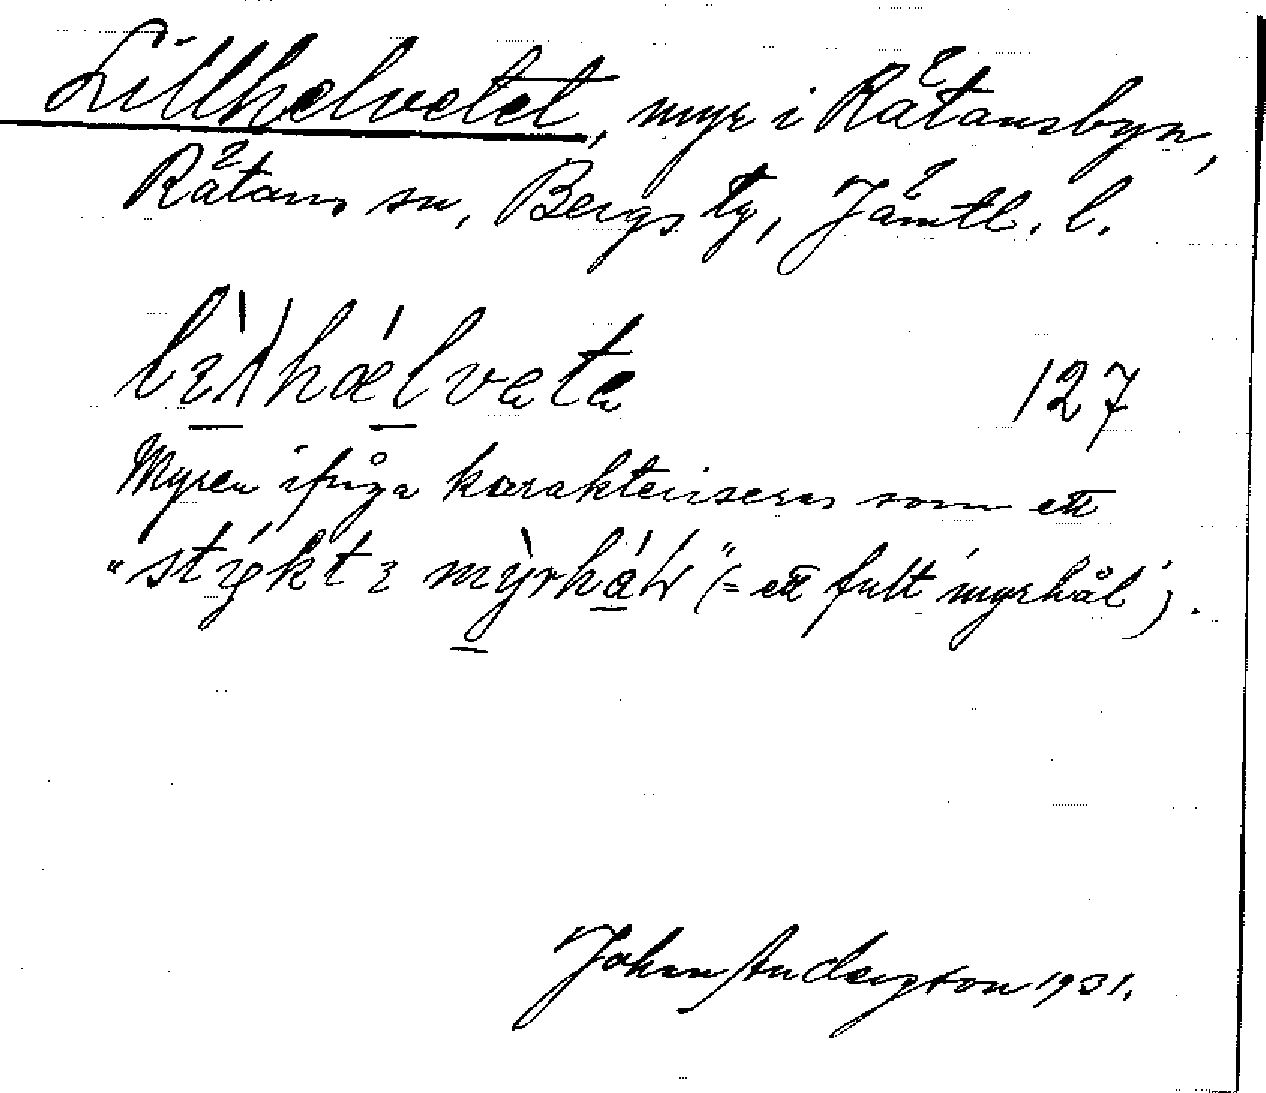 Lillhelvetet, myr i Rätansbyn,
Rätans sn, Bergs tg, Jämtl. l.
127
Myren ifråga karakteriseras som ett
(= ett fult "myrhål").
Johan Andersson 1931.